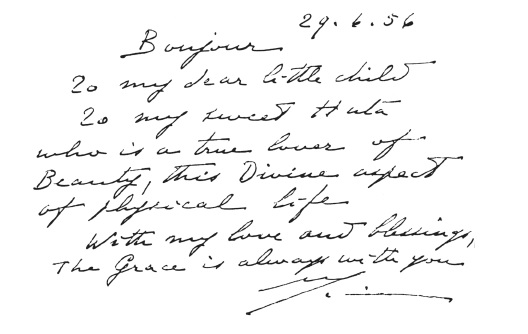 29.6.56
Bonjour
To my dear little child
To my sweet Huta
who is a true lover of
Beauty, this Divine aspect
of physical life
With my love and blessings,
The Grace is always with you